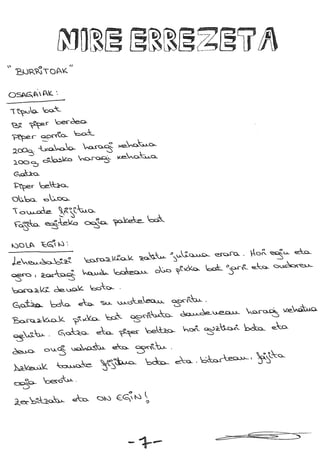 NIRE ERREZETA
"BURRITOAK"
OSAGAIAK:
Tipula bat
Bi piper berdea
Piper gorria bat
200g txahala haragi xehatua
200g zibasko haragi xehatua
Gatza
Piper beltza
Oliba olioa
Tomate frijitua
Fajita egiteko ogia pakete bat
NOLA EGIN:
Lehendabizi barazkiak zatitu juliana erara. Hori egin eta
gero, zartagi handi batean olio pixka bat jarri eta ondoren
barazki denak bota.
Gatza bota eta su motelean gorritu.
Barazkiak pixka bat gorrituta daudenean haragi xehatua
gehitu. Gatza eta piper beltza hori guztiari bota eta
dena ongi nahastu eta gorritu.
Azkenik tomate frijitua bota eta, bitartean, fajita
ogia berotu.
Zerbitzatu eta ON EGIN!
-7-